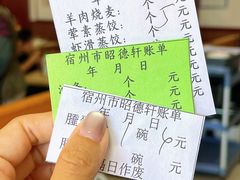 羊肉烧麦: 个 元
荤素蒸饺: 个 元
虾滑蒸饺: 个 元
宿州市昭德轩账单
年 月 日
个 元
个 元
宿州市昭德轩账单
年 月 日
碗 元
碗 元
日作废